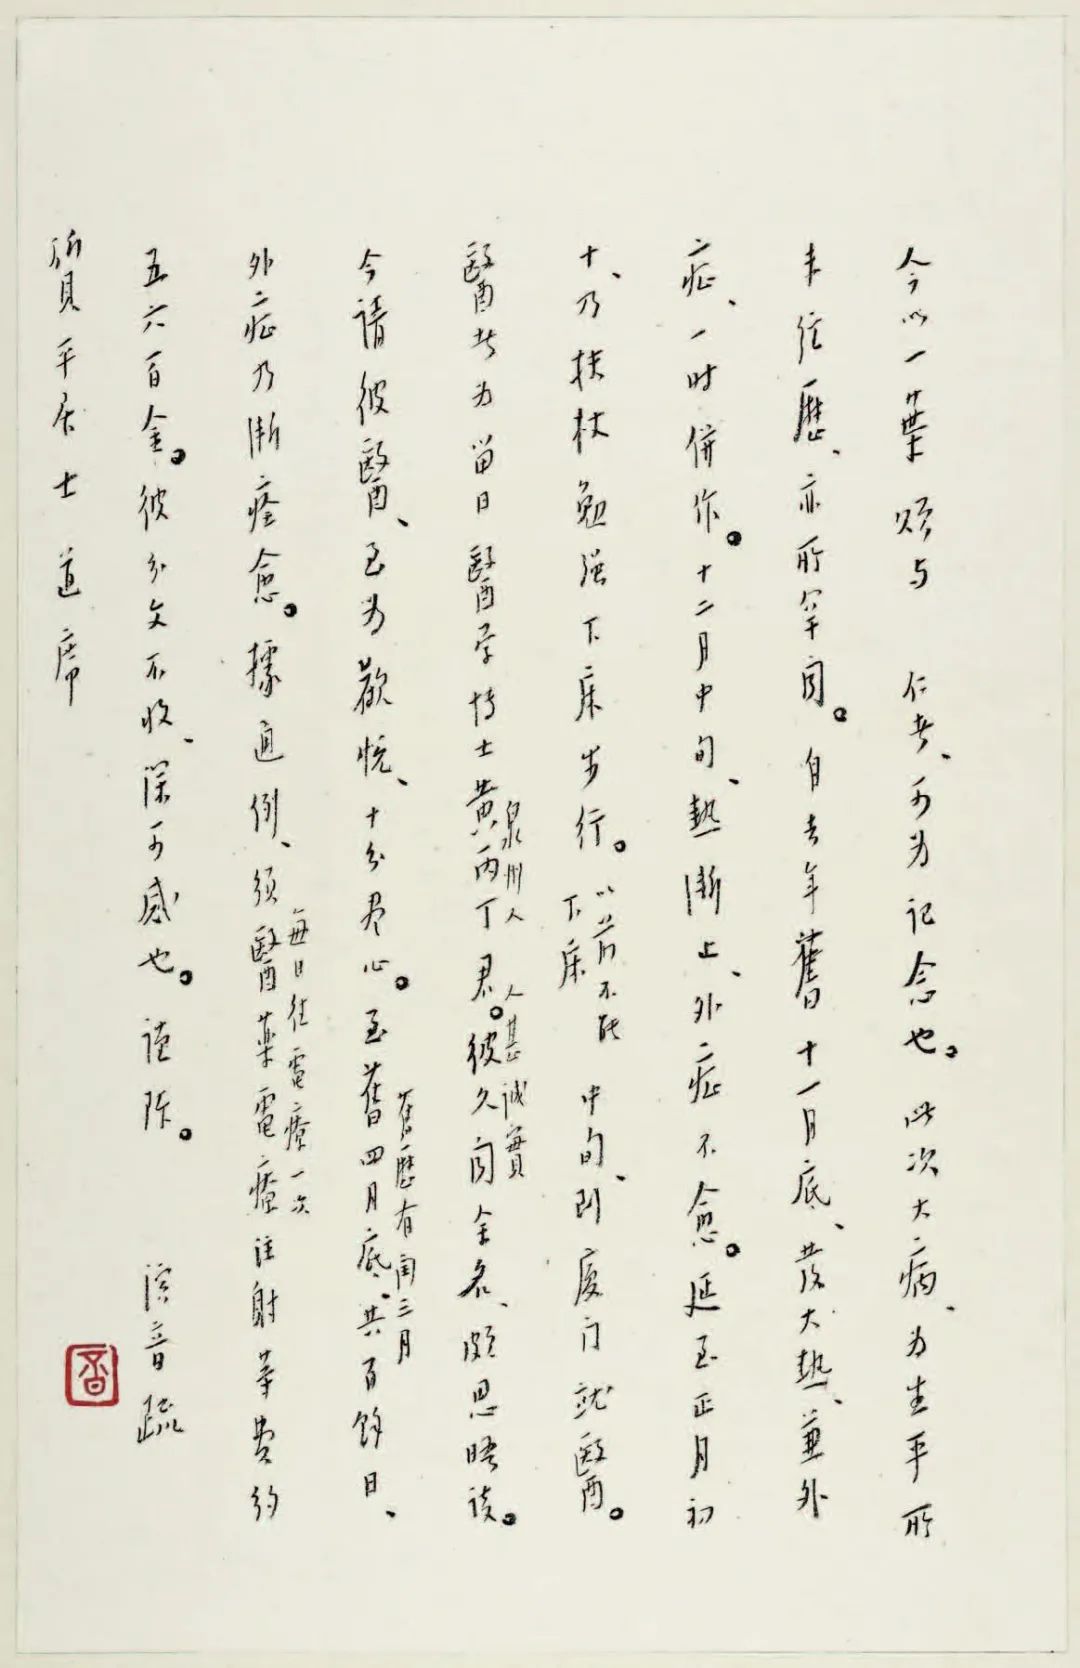 今以一葉贈与 仁者、可为記念也。此次大病、为生平所
未經歷、亦所罕闻。自去年舊十一月底、发大热、兼外
症、一时併作。十二月中旬、热漸止、外症不愈。延至正月初
十、乃扶杖勉强下床步行。以前不能下床 中旬、到廈门就醫。
醫者为留日醫学博士黄丙丁君。泉州人 人甚诚實 彼久闻余名、頗思晤谈。
今請彼醫、至为歡悦、十分尽心。至舊四月底、舊歷有闰三月 共百餘日、
外症乃漸痊愈。據通例、须醫藥電療注射等费約 每日往電療一次
五六百金。彼分文不收、深可感也。谨陈。 演音疏
質平居士道席
音